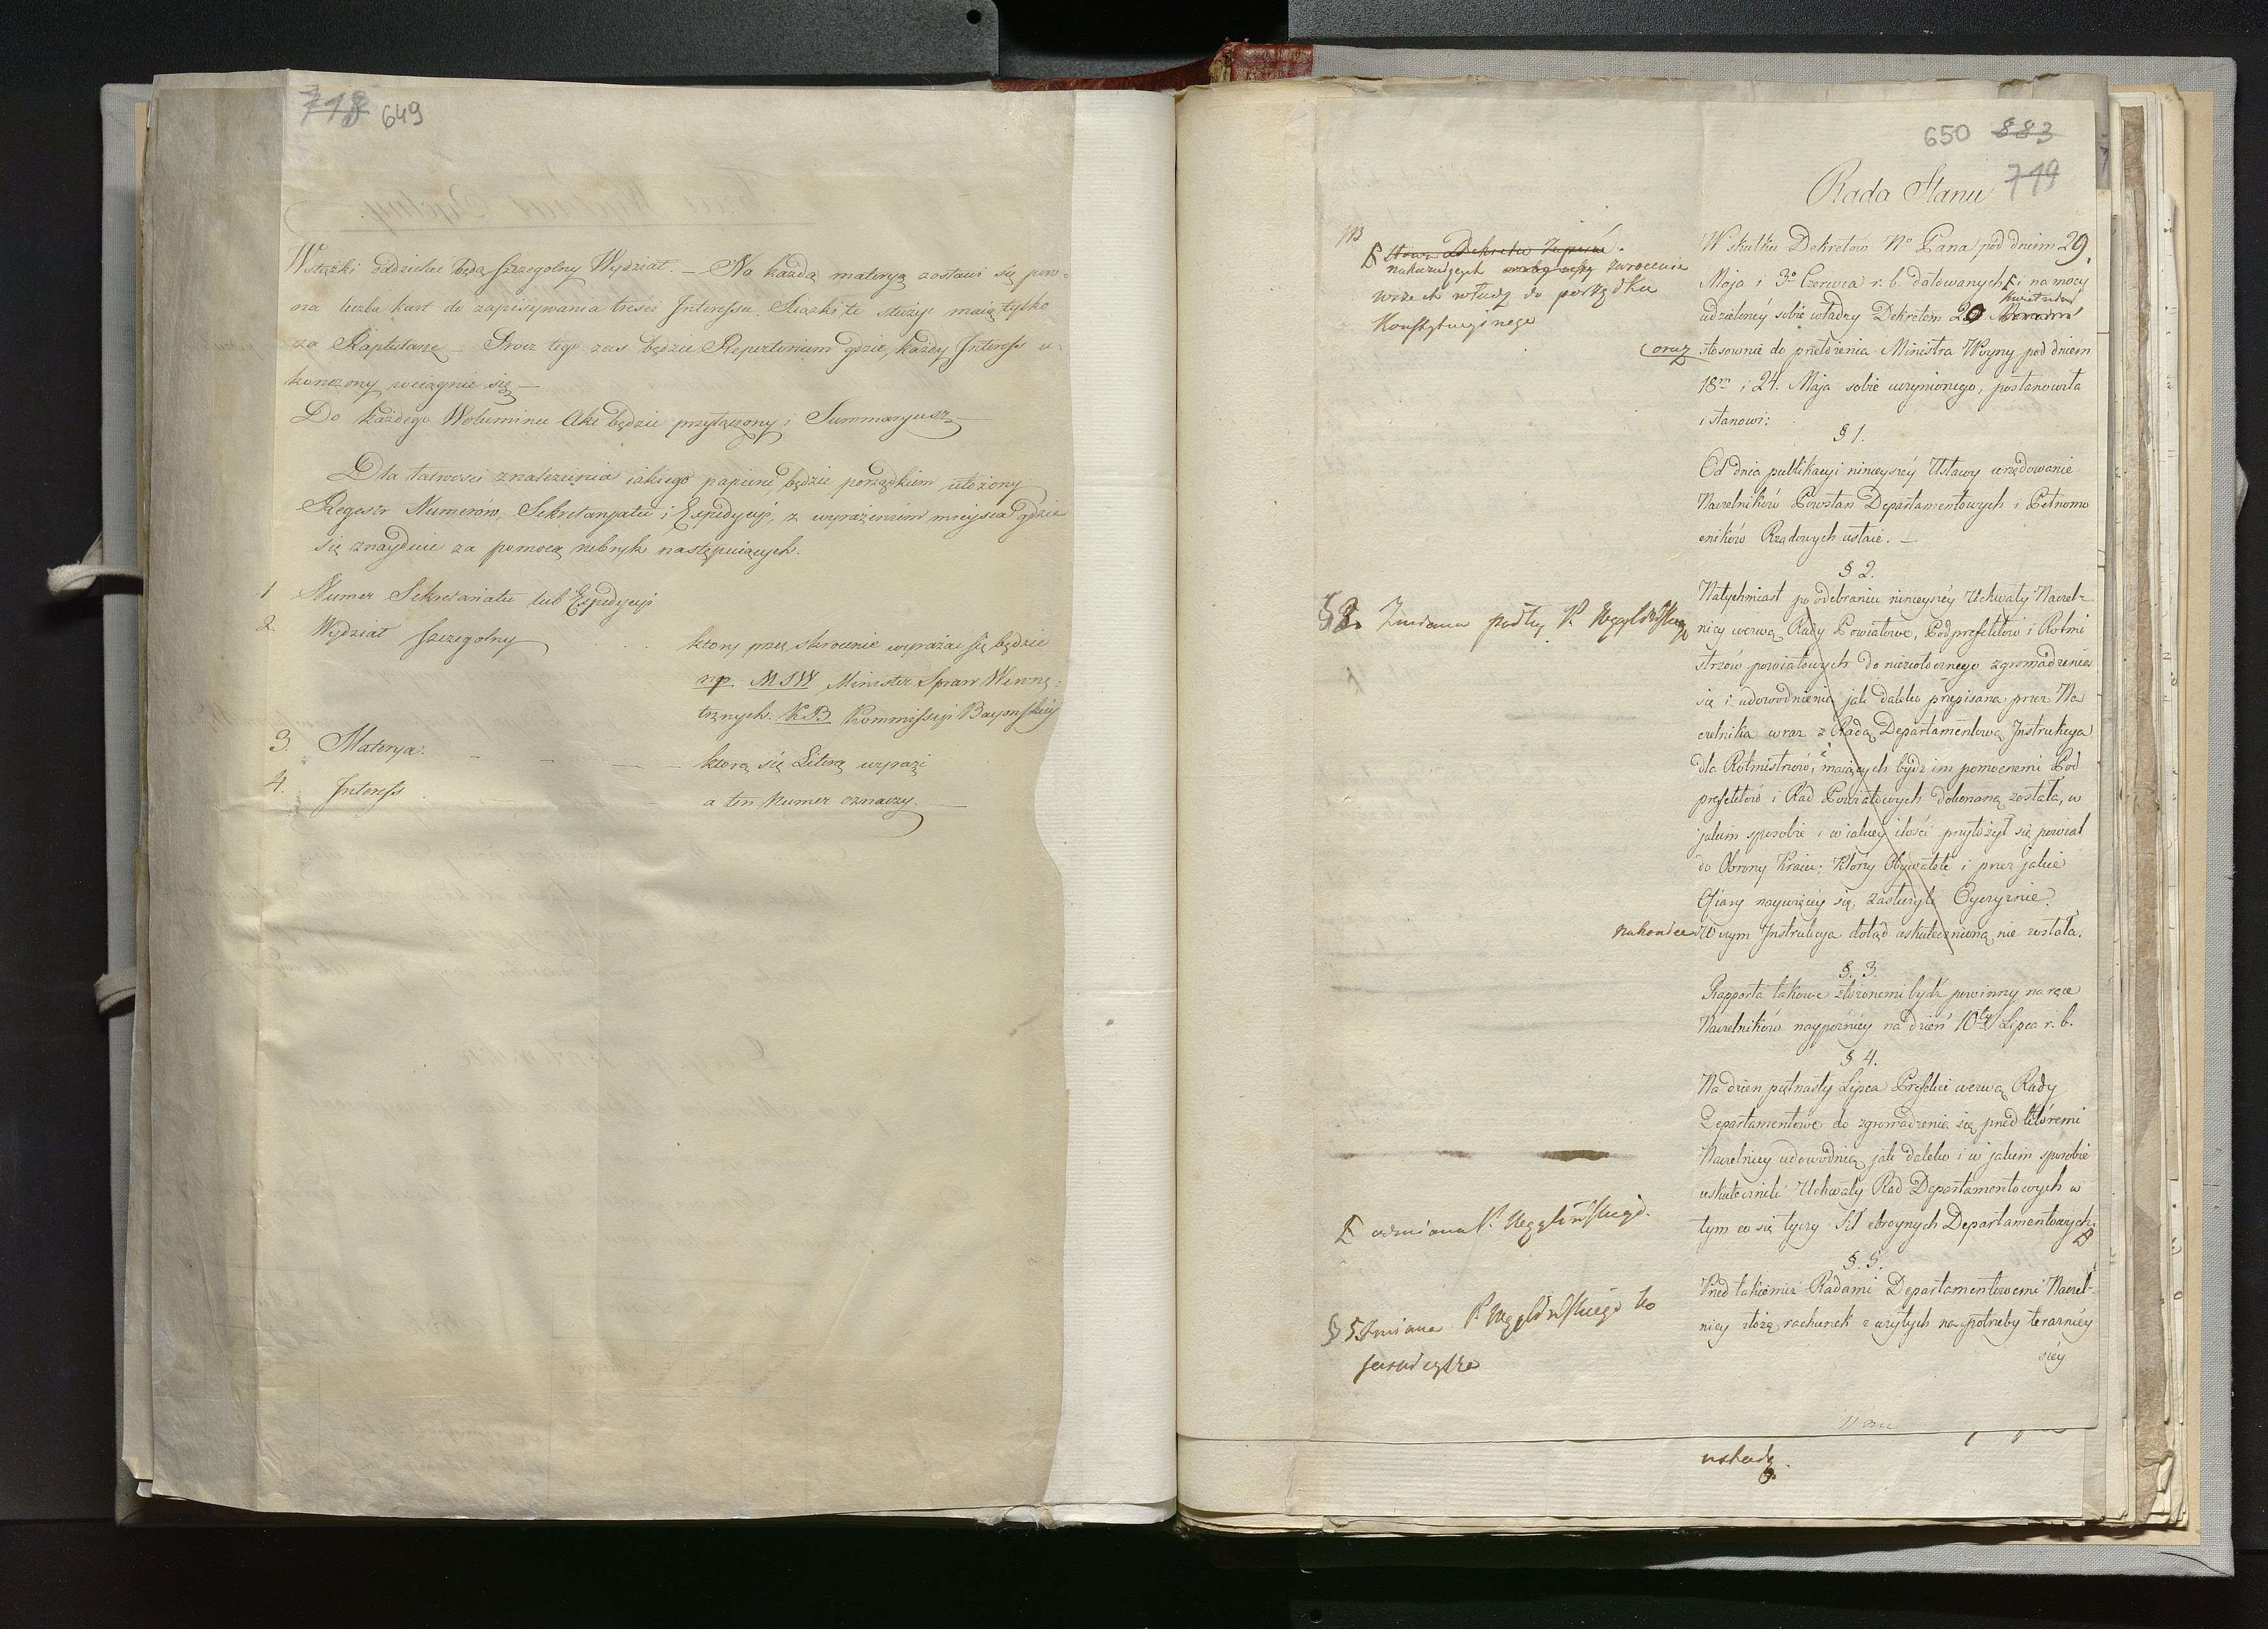 718 649
Wstążki oddzielać będą szczegolny Wydział. — Na każdą materyą zostawi się pew-
na liczba kart do zapisywania tresci Interessu. Xiążki te służyć maią tylko
za Raptularze — Procz tego zas będzie Repertorium gdzie każdy Interess u-
konczony wciągnie się —
Do każdego Woluminu Akt będzie przyłączony i Summaryusz —
Dla łatwosci znalezienia iakiego papieru, będzie porządkiem ułożony
Regestr Numerów, Sekretaryatu i Expedycyi, z wyrażeniem mieysca gdzie
się znayduie za pomocą rubryk następuiących.
1 Numer Sekretariatu lub Expedycyi
2. Wydział szczegolny . . . ktory przez skrocenie wyrażac się będzie
np. MSW Minister Spraw Wewnę-
trznych. KB Kommissyi Bayonskiey
3. Materya. — — — która się Literą wyrazi
4. Interess . — — — a ten Numer oznaczy. —
650 883
719
Rada Stanu
W skutku Dekretów No Pana pod dniem 29.
Maja i 3o Czerwca r. b. datowanych i na mocy
udzieloney sobie władzy Dekretem 20 Kwietnia
oraz stosownie do przełożenia Ministra Woyny pod dniem
18m i 24. Maja sobie uczynionego, postanowiła
i stanowi:
§ 1.
Od dnia publikacyi ninieyszéy Ustawy urzędowanie
Naczelników Powstań Departamentowych i Pełnomo
cników Rządowych ustaie. —
§ 2.
Natychmiast po odebraniu ninieyszéy Uchwały Naczel-
nicy wezwą Rady Powiatowe, Podprefektów i Rotmi
strzów powiatowych do niezwłocznego zgromadzenia
się i udowodnienia jak daleko przepisana przez Na
czelnika wraz z Radą Departamentową Instrukcya
dla Rotmistrzów, i maiących bydź im pomocnemi Pod
prefektów i Rad Powiatowych dokonaną została, w
jakim sposobie i w iakiey ilości przyłożył się powiat
do Obrony Kraiu; Którzy Obywatele i przez jakie
Ofiary naywięcéy się zasłużyli Oyczyznie?
nakoniec W czym Instrukcya dotąd uskutecznioną nie została.
§. 3.
Rapporta takowe złożonemi bydź powinny na ręce
Naczelników naypóźniéy na dzień 10ty Lipca r. b.
§ 4.
Na dzien piętnasty Lipca Prefekci wezwą Rady
Departamentowe do zgromadzenia się, przed któremi
Naczelnicy udowodnią jak daleko i w jakim sposobie
uskutecznili Uchwały Rad Departamentowych w
tym co się tyczy Sił zbroynych Departamentowych.
§. 5.
Przed takiemiż Radami Departamentowemi Naczel-
nicy złożą rachunek z użytych na potrzeby teraźniéy
széy
nakazuiących zwrocenie
wszech władz do porządku
Konstytucyinego
§ 2. Zmiana podług P. Węglińskiego
odmiana P. Węglińskiego.
§ 5 Zmiana P. Węglińskiego